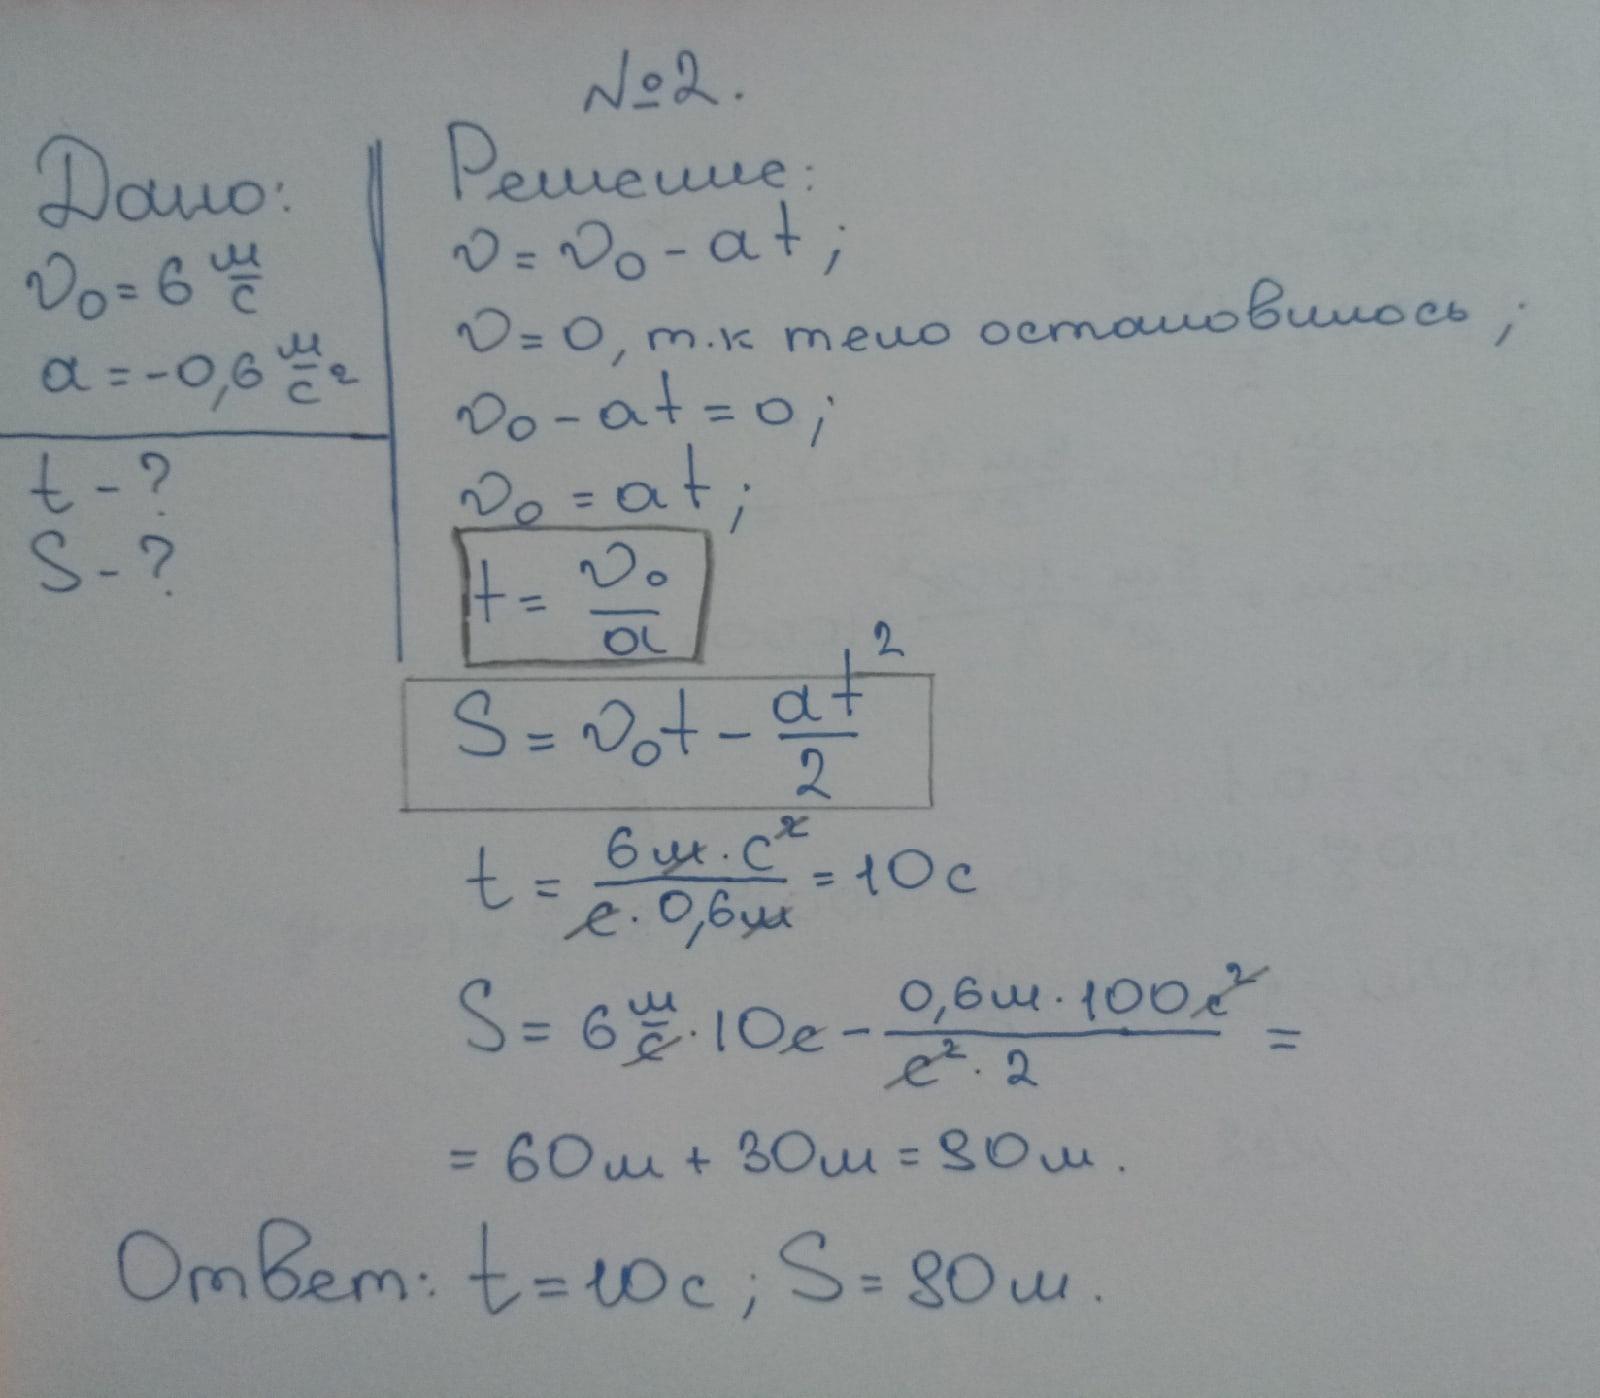 №2.
Дано:
v₀ = 6 м/с
a = -0,6 м/с²
t - ?
S - ?
Решение:
v = v₀ - at;
v = 0, т.к тело остановилось;
v₀ - at = 0;
v₀ = at;
t = v₀/a
S = v₀t - at²/2
t = 6м · с²/с · 0,6м = 10с
S = 6 м/с · 10с - 0,6м · 100с²/с² · 2 =
= 60м + 30м = 90м.
Ответ: t = 10с; S = 90м.